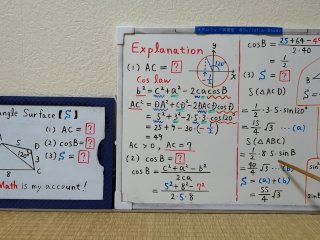 angle Surface [S]
(1) AC = ?
(2) cosB = ?
(3) S = ?
S
D
3
120°
C
Math is my account!
Explanation
(1) AC = ?
Cos law
b² = c² + a² - 2cacosB
AC² = DA² + CD² - 2DACDcosD
= 5² + 3² - 2·5·3 cos120°
= 25 + 9 - 30·(-1/2)
= 49
AC > 0, AC = 7
(2) cosB = ?
cosB = (c² + a² - b²)/2ca
= (5² + 8² - 7²)/2·5·8
y
x
120°
cosB = (25 + 64 - 49
2·40
(3) S = ?
S(△ACD)
= 1/2·3·5·sin120°
= 15/4 √3 ...(a)
S(△ABC)
= 1/2·8·5·sinB
= 40/4 √3 ...(b)
S = (a) + (b)
= 55/4 √3